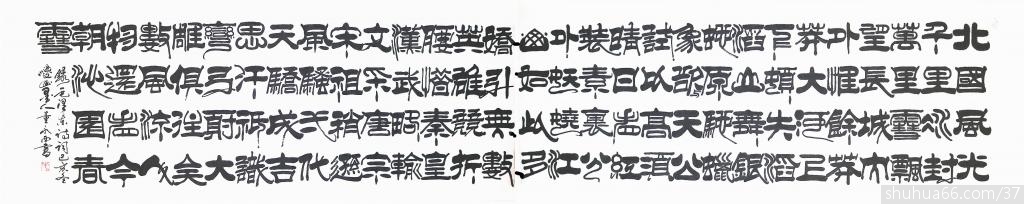 北國風光
千里冰封
萬里雪飄
望長城內
外惟餘莽
莽大河上
下頓失滔
滔山舞銀
蛇原馳蠟
象欲天公
試比高須
晴日看紅
裝素裹分
外妖嬈江
山如此多
嬌引無數
英雄競折
腰惜秦皇
漢武略輸
文采唐宗
宋祖稍遜
風騷弌代
天驕成吉
思汗祇識
彎弓射大
雕俱往矣
數風流人
物還看今
朝沁園春
雪
錄毛澤東詩詞己亥冬
shuhua66.com/37